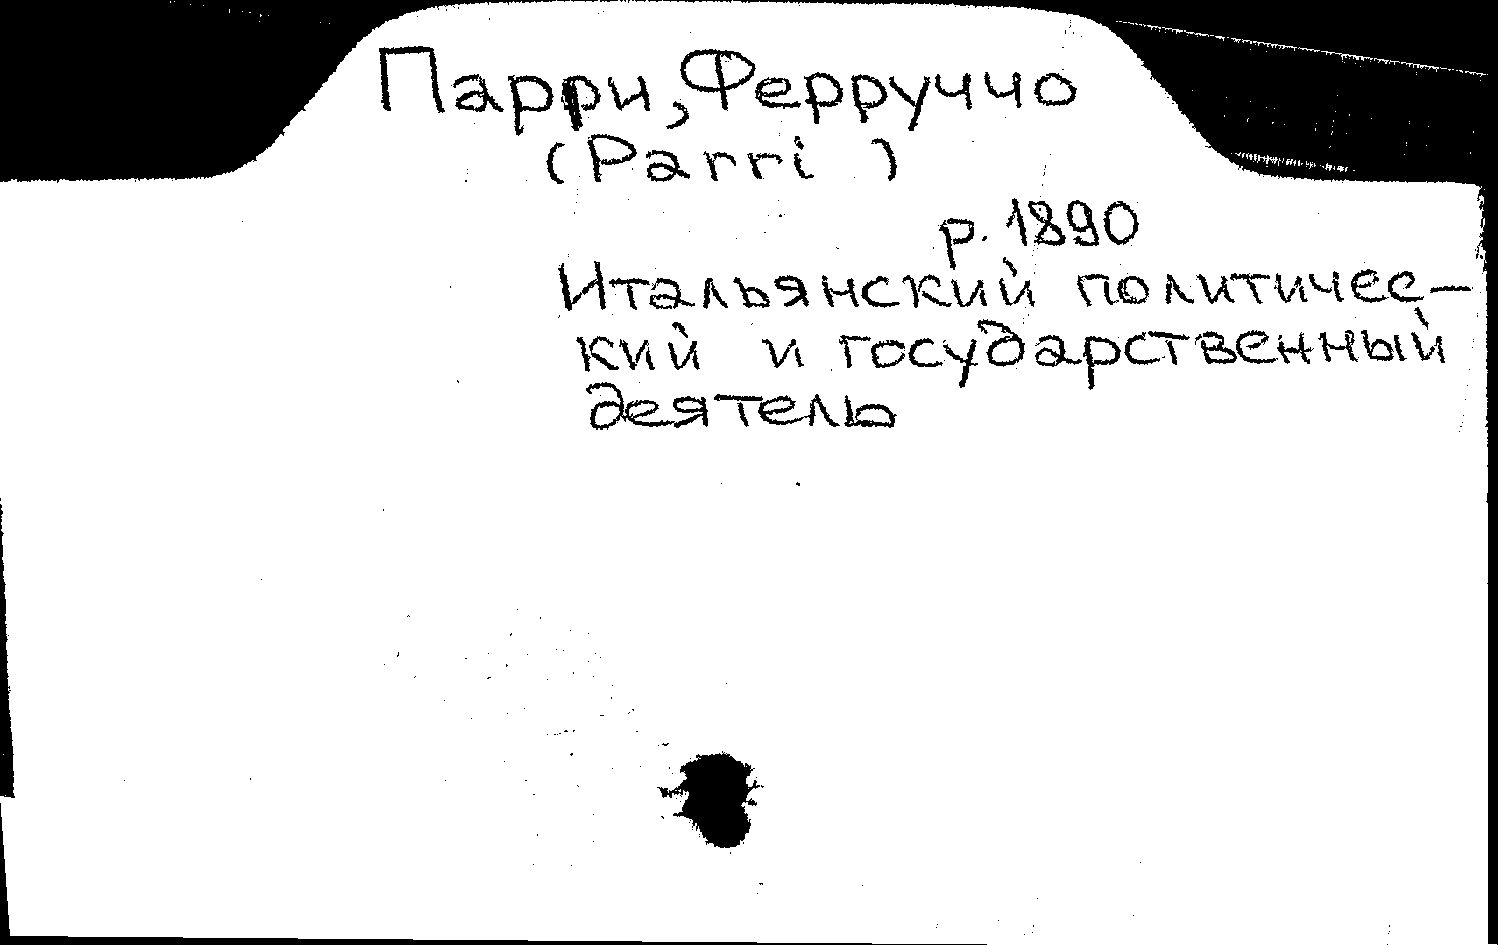 Парри, Ферруччо
(Parri )
р. 1890
Итальянский политичес-
кий и государственный
деятель